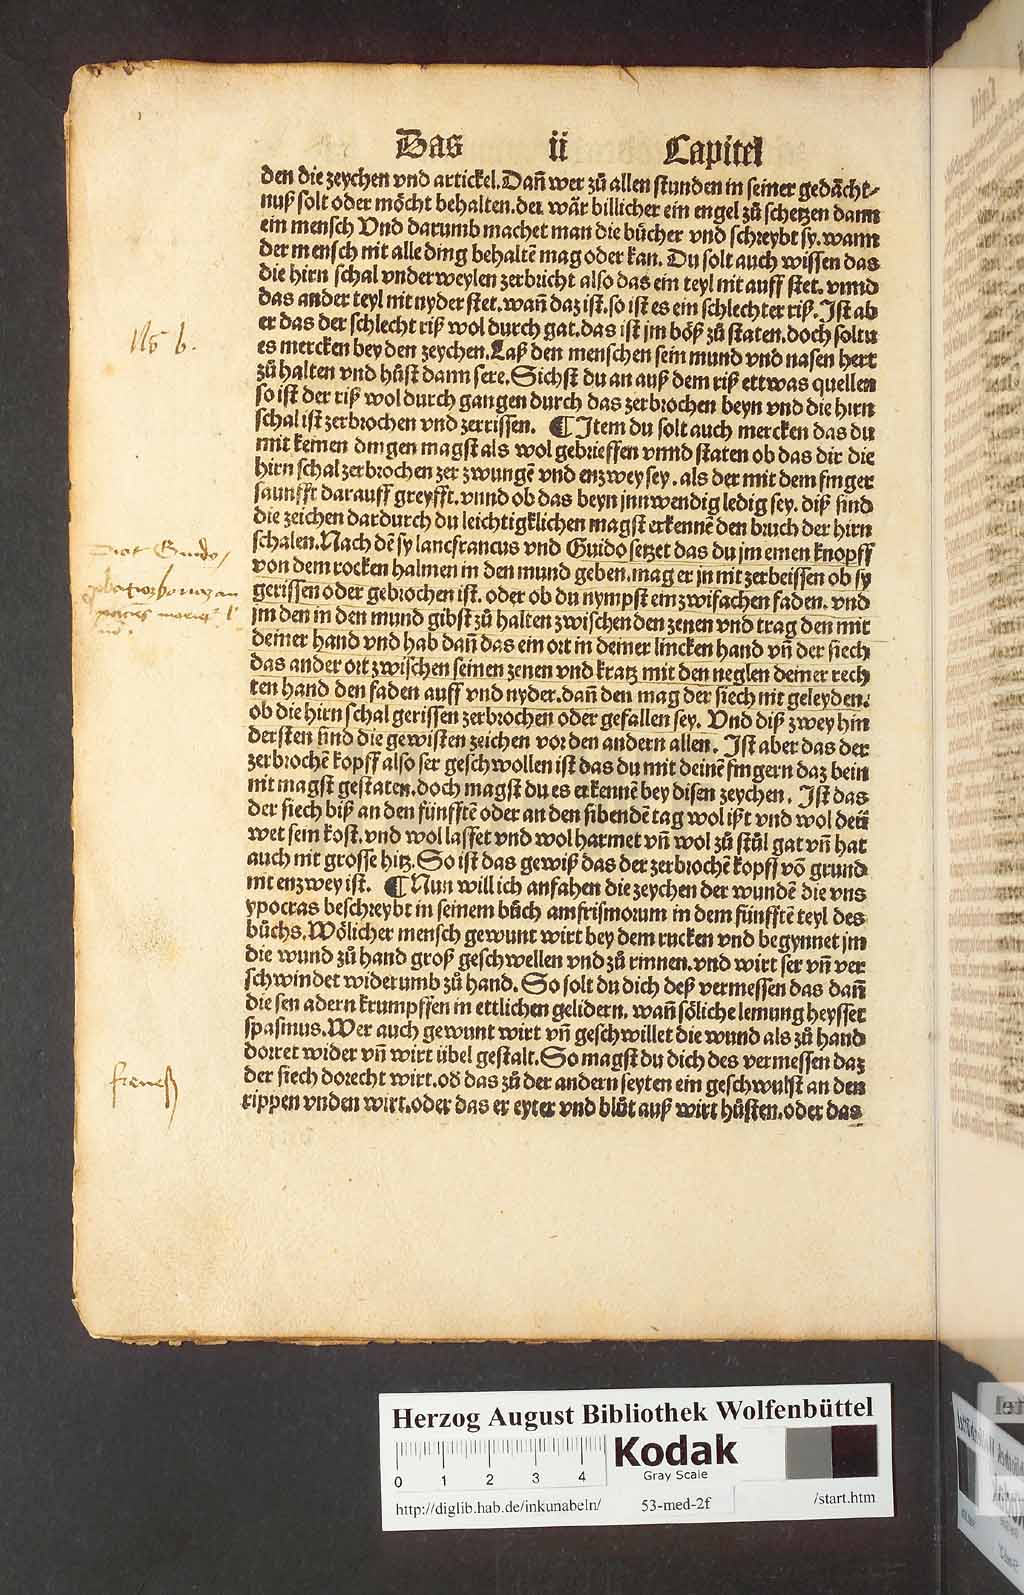 Das ii Capitel
den die zeychen vnd artickel. Dañ wer zů allen stunden in seiner gedächt-
nuß solt oder möcht behalten. der wär billicher ein engel zů schetzen dann
ein mensch Vnd darumb machet man die bůcher vnd schreybt sy. wann
der mensch nit alle ding behaltē mag oder kan. Du solt auch wissen das
die hirn schal vnderweylen zerbricht also das ein teyl nit auff stet. vnnd
das ander teyl nit nyder stet. wañ daz ist. so ist es ein schlechter riß. Ist ab
er das der schlecht riß wol durch gat. das ist jm böß zů staten. doch soltu
es mercken bey den zeychen. Laß den menschen sein mund vnd nasen hert
zů halten vnd hůst dann sere. Sichst du an auß dem riß ettwas quellen
so ist der riß wol durch gangen durch das zerbrochen beyn vnd die hirn
schal ist zerbrochen vnd zerrissen. ¶ Item du solt auch mercken das du
mit keinen dingen magst als wol gebrieffen vnnd staten ob das dir die
hirn schal zerbrochen zer zwungē vnd enzwey sey. als der mit dem finger
saunfft darauff greyfft. vnnd ob das beyn jnnwendig ledig sey. diß sind
die zeichen dardurch du leichtigklichen magst erkennē den bruch der hirn
schalen. Nach dē sy lancfrancus vnd Guido setzet das du jm einen knopff
von dem rocken halmen in den mund geben. mag er jn nit zerbeissen ob sy
gerissen oder gebrochen ist. oder ob du nympst ein zwifachen faden. vnd
jm den in den mund gibst zů halten zwischen den zenen vnd trag den mit
deiner hand vnd hab dañ das ein ort in deiner lincken hand vñ der siech
das ander ort zwischen seinen zenen vnd kratz mit den neglen deiner rech
ten hand den faden auff vnd nyder. dañ den mag der siech nit geleyden.
ob die hirn schal gerissen zerbrochen oder gefallen sey. Vnd diß zwey hin
dersten sind die gewisten zeichen vor den andern allen. Ist aber das der
zerbrochē kopff also ser geschwollen ist das du mit deinē fingern daz bein
nit magst gestaten. doch magst du es erkennē bey disen zeychen. Ist das
der siech biß an den fünfftē oder an den sibendē tag wol ißt vnd wol deü
wet sein kost. vnd wol lasset vnd wol harmet vñ wol zů stůl gat vñ hat
auch nit grosse hitz. So ist das gewiß das der zerbrochē kopff vō grund
nit enzwey ist. ¶ Nun will ich anfahen die zeychen der wundē die vns
ypocras beschreybt in seinem bůch amfrismorum in dem fünfftē teyl des
bůchs. Wölicher mensch gewunt wirt bey dem rucken vnd begynnet jm
die wund zů hand groß geschwellen vnd zů rinnen. vnd wirt ser vñ ver
schwindet widerumb zů hand. So solt du dich deß vermessen das dañ
die sen adern krumpffen in ettlichen gelidern. wañ söliche lemung heysset
spasmus. Wer auch gewunt wirt vñ geschwillet die wund als zů hand
dorret wider vñ wirt übel gestalt. So magst du dich des vermessen daz
der siech dorecht wirt. od das zů der andern seyten ein geschwulst an den
rippen vnden wirt. oder das er eyter vnd blůt auß wirt hůsten. oder das
b.
Guido
Herzog August Bibliothek Wolfenbüttel
Kodak
Gray Scale
0 1 2 3 4
http://diglib.hab.de/inkunabeln/ 53-med-2f /start.htm